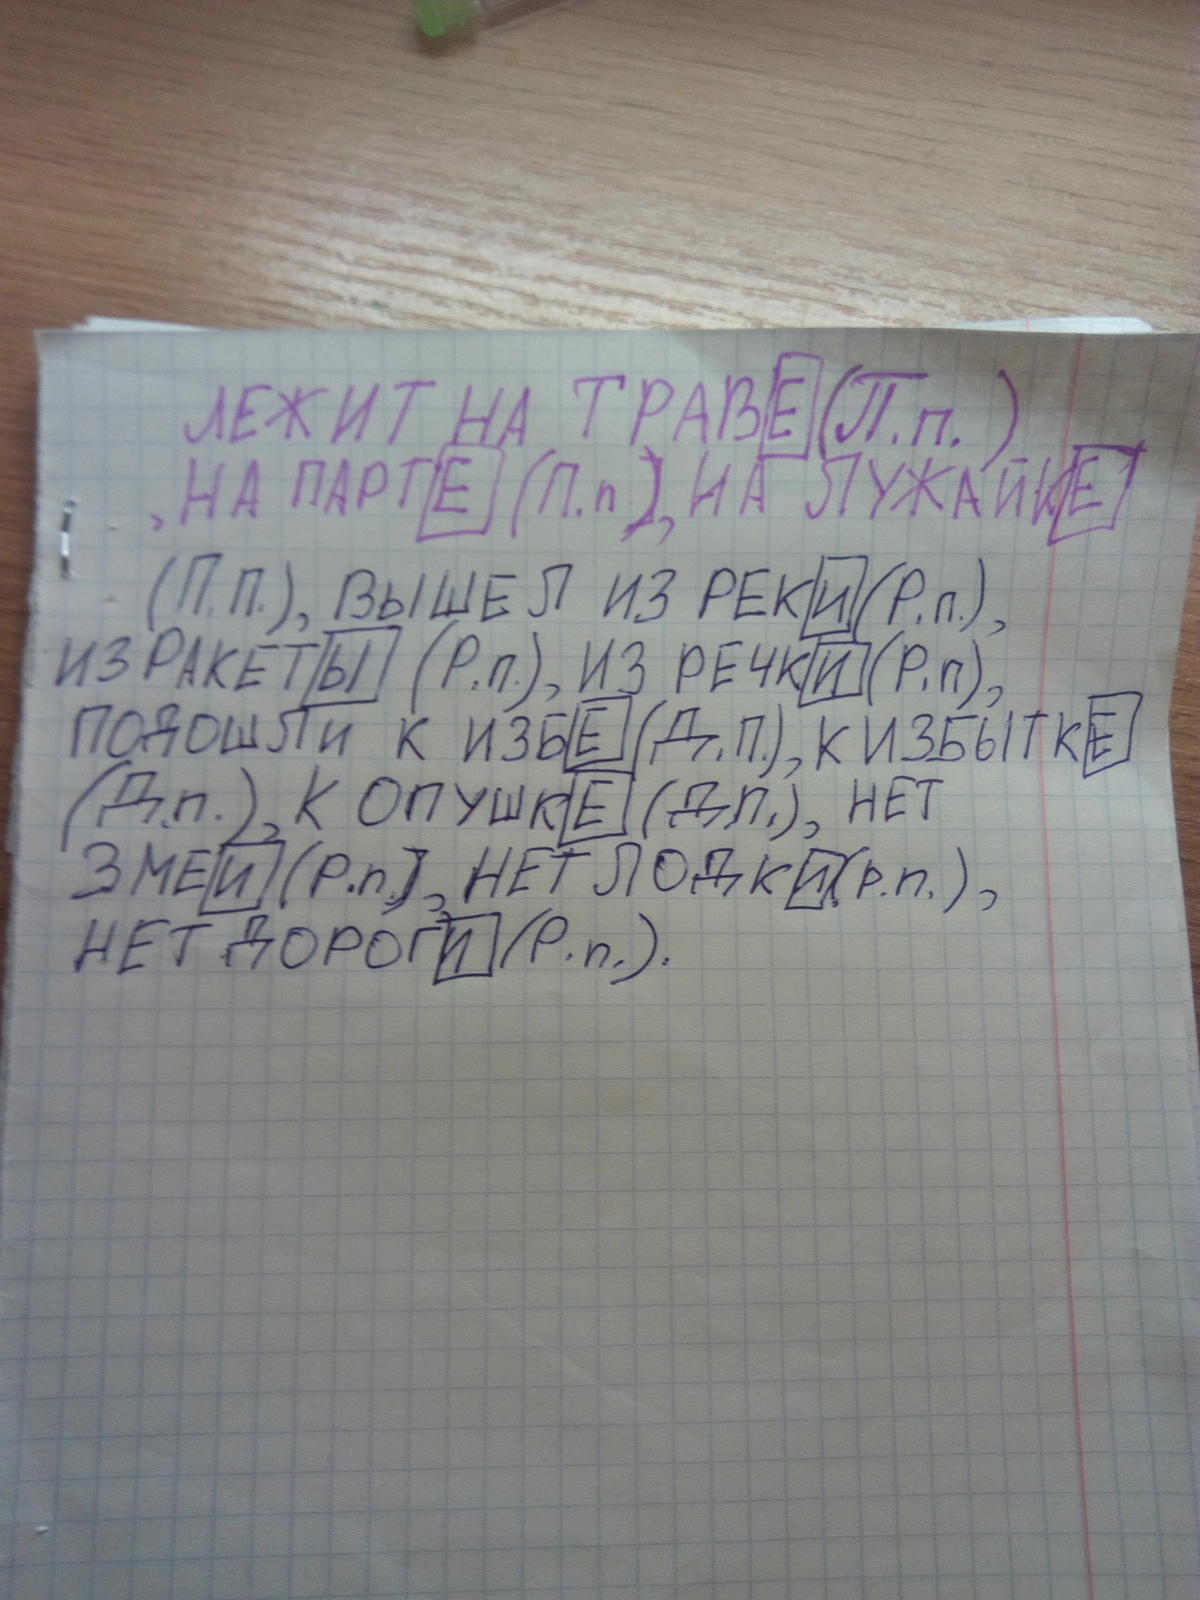 ЛЕЖИТ НА ТРАВЕ (П.п.)
, НА ПАРТЕ (П.п.), НА ЛУЖАЙКЕ
(П.П.), ВЫШЕЛ ИЗ РЕКИ (Р.п.),
ИЗ РАКЕТЫ (Р.п.), ИЗ РЕЧКИ (Р.п),
ПОДОШЛИ К ИЗБЕ (Д.П.), К ИЗБЫТКЕ
(Д.п.), К ОПУШКЕ (Д.П.), НЕТ
ЗМЕИ (Р.п.), НЕТ ЛОДКИ (Р.П.),
НЕТ ДОРОГИ (Р.п.).